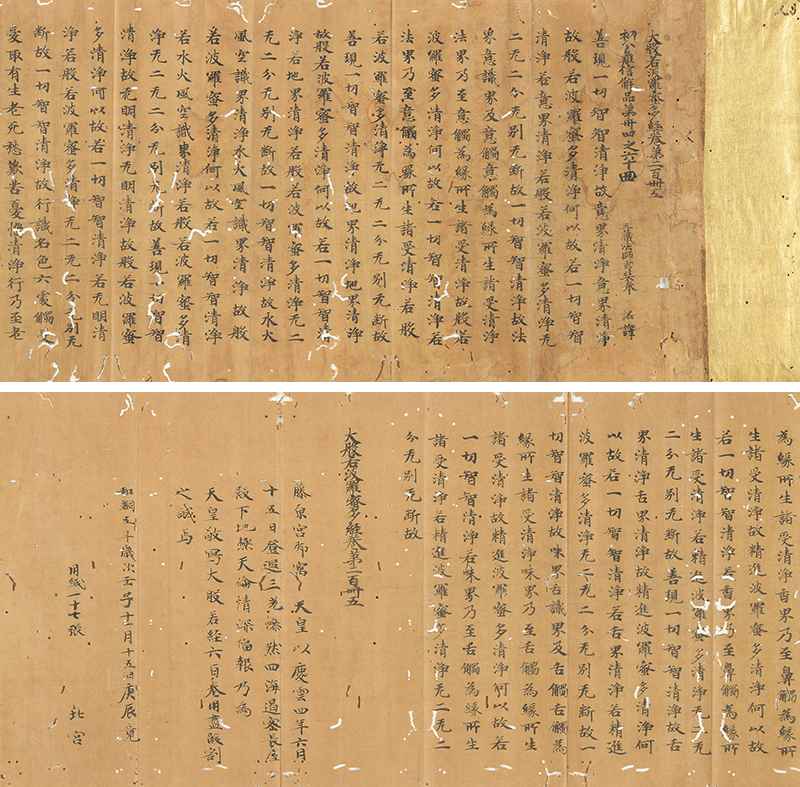 大般若波羅蜜多經卷第二百卌五
初分難信解品第卅四之六十四
三藏法師玄奘奉 詔譯
善現一切智智清淨故意界清淨意界清淨
故般若波羅蜜多清淨何以故若一切智智
清淨若意界清淨若般若波羅蜜多清淨无
二无二分无別无斷故一切智智清淨故法
界意識界及意觸意觸為緣所生諸受清淨
法界乃至意觸為緣所生諸受清淨故般若
波羅蜜多清淨何以故若一切智智清淨若
法界乃至意觸為緣所生諸受清淨若般
若波羅蜜多清淨无二无二分无別无斷故
善現一切智智清淨故地界清淨地界清淨
故般若波羅蜜多清淨何以故若一切智智清
淨若地界清淨若般若波羅蜜多清淨无二
无二分无別无斷故一切智智清淨故水火
風空識界清淨水火風空識界清淨故般
若波羅蜜多清淨何以故若一切智智清淨
若水火風空識界清淨若般若波羅蜜多清
淨无二无二分无別无斷故善現一切智智
清淨故无明清淨无明清淨故般若波羅蜜
多清淨何以故若一切智智清淨若无明清
淨若般若波羅蜜多清淨无二无二分无別无
斷故一切智智清淨故行識名色六處觸受
愛取有生老死愁歎苦憂惱清淨行乃至老
為緣所生諸受清淨香界乃至鼻觸為緣所
生諸受清淨故精進波羅蜜多清淨何以故
若一切智智清淨若香界乃至鼻觸為緣所
生諸受清淨若精進波羅蜜多清淨无二无
二分无別无斷故善現一切智智清淨故舌
界清淨舌界清淨故精進波羅蜜多清淨何
以故若一切智智清淨若舌界清淨若精進
波羅蜜多清淨无二无二分无別无斷故一
切智智清淨故味界舌識界及舌觸舌觸為
緣所生諸受清淨味界乃至舌觸為緣所生
諸受清淨故精進波羅蜜多清淨何以故若
一切智智清淨若味界乃至舌觸為緣所生
諸受清淨若精進波羅蜜多清淨无二无二
分无別无斷故
大般若波羅蜜多經卷第二百卌五
藤原宮御寓 天皇以慶雲四年六月
十五日登遐三光慘然四海遏密長屋
殿下地極天倫情深福報乃為
天皇敬寫大般若經六百卷用盡酸割
之誠焉
和銅五年歲次壬子十一月十五日庚辰竟
用紙一十七張 北宮